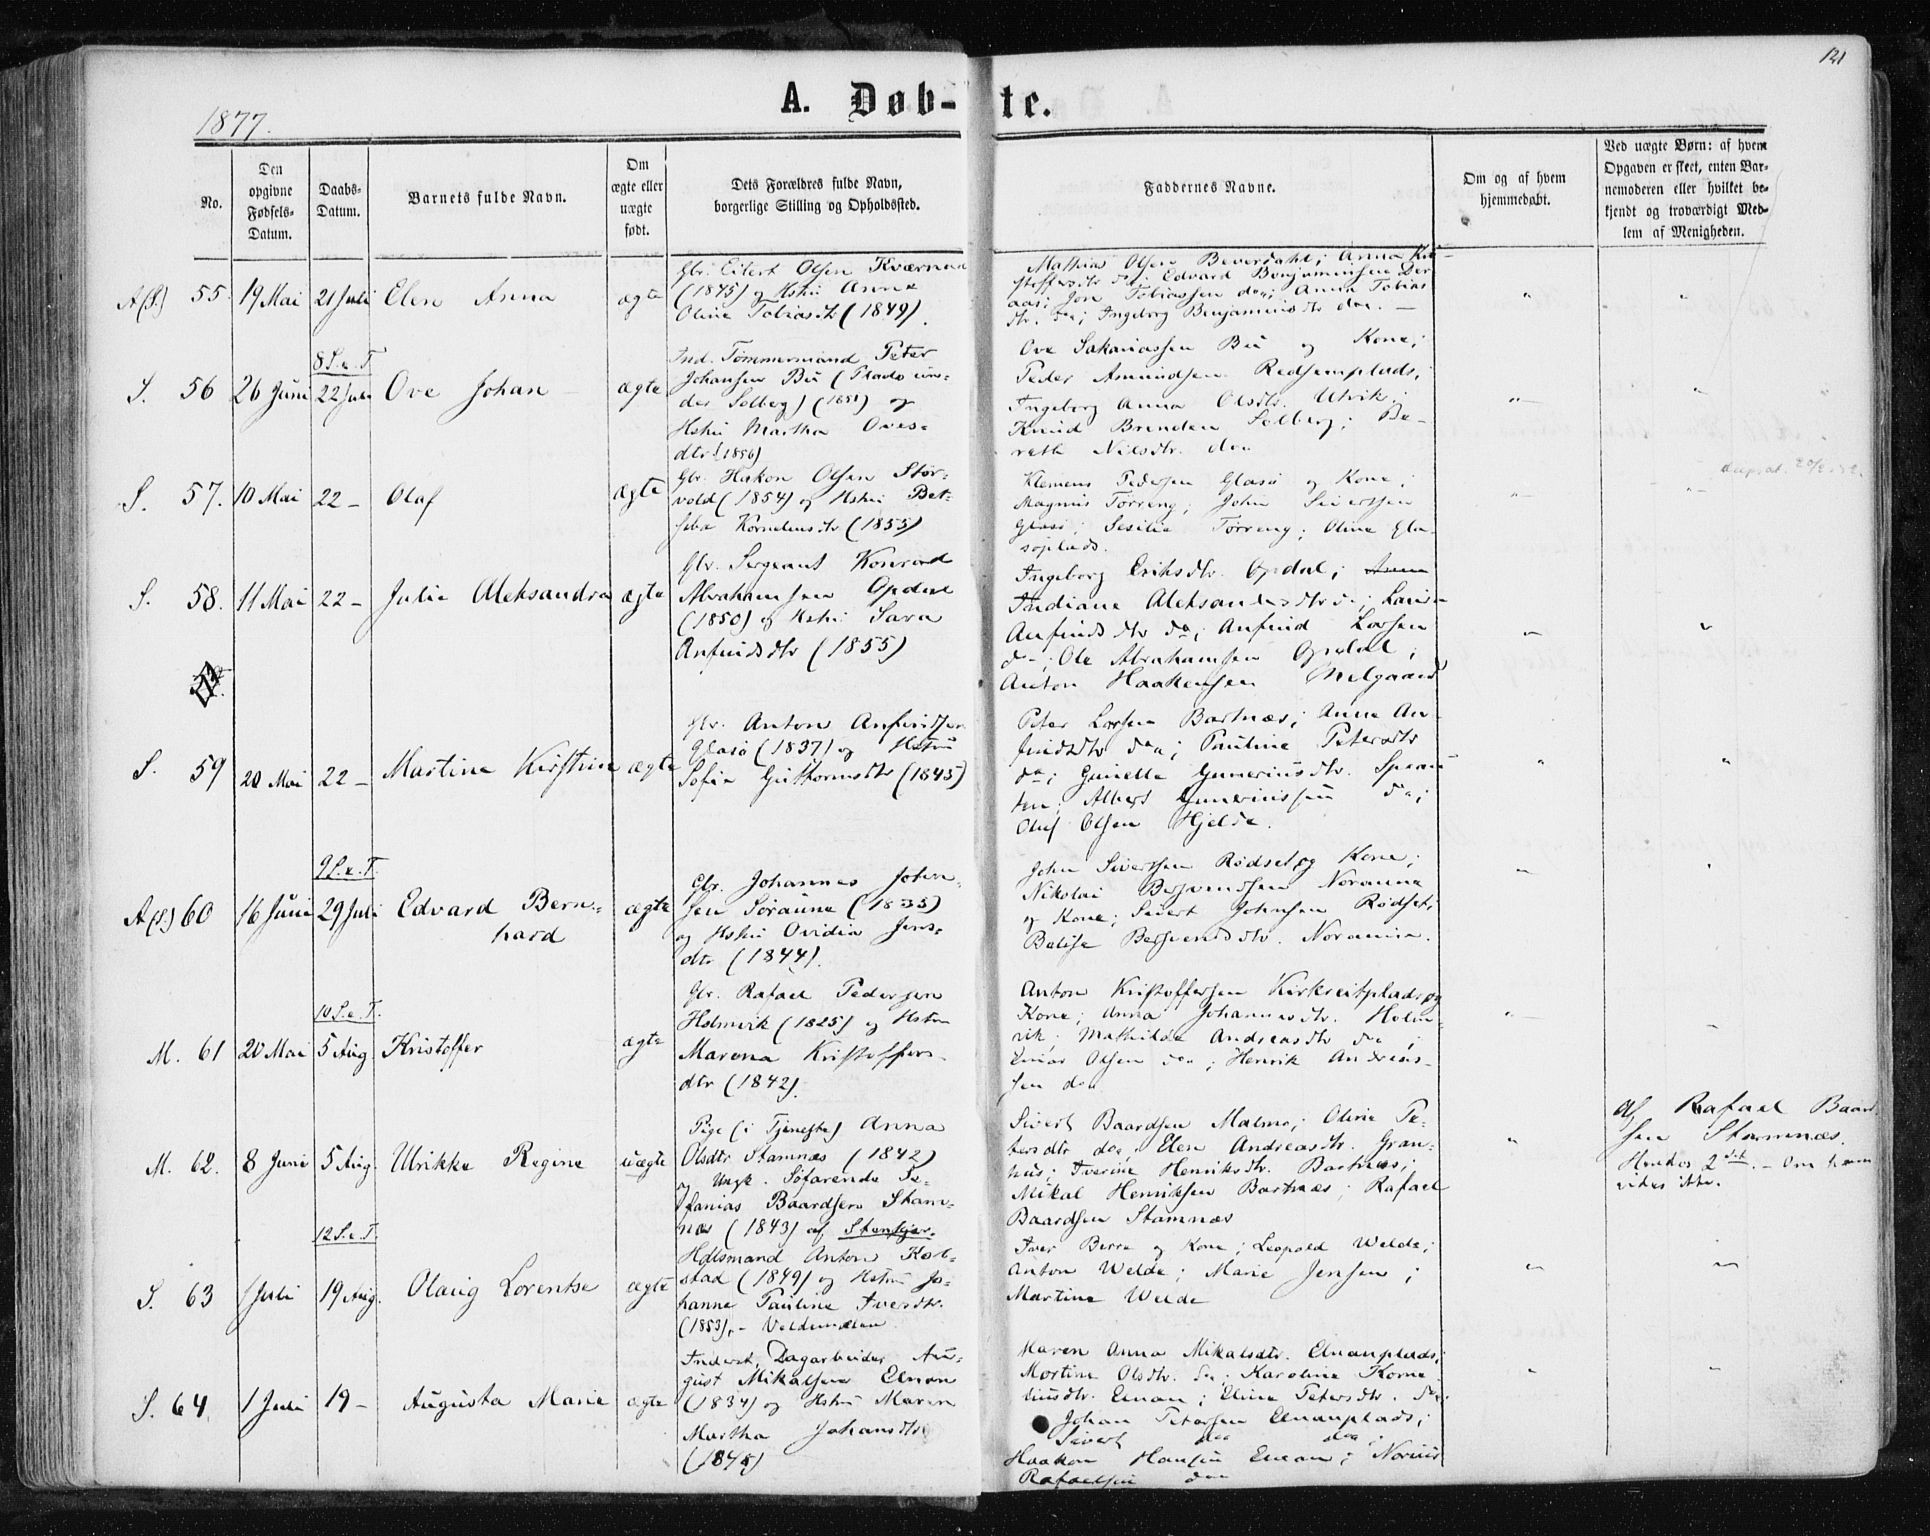 121
1877.
A. Døb-te.
No.
Den opgivne Fødsels-Datum.
Daabs-Datum.
Barnets fulde Navn.
Om ægte eller uægte født.
Dets Forældres fulde Navn, borgerlige Stilling og Opholdssted.
Faddernes Navne.
Om og af hvem hjemmedøbt.
Ved uægte Børn: af hvem Opgaven er skeet, enten Barnemoderen eller hvilket bekjendt og troværdigt Medlem af Menigheden.
A(S.) 55. 19 Mai 21 Juli Elen Anna ægte
Gbr. Eilert Olsen Kværnad
(1845) og Hstru Anna
Oline Tobiasdtr (1849).
Mathias Olsen Beverdahl; Anna Kri-
stoffersdtr do; Edvard Benjaminsen Der
aas; Jon Tobiassen doo; Anna Tobias
dtr. doo; Ingeborg Benjaminsdtr doo. —
8 S. e. T.
S. 56 26 Juni 22 Juli Ove Johan ægte
Ind. Tømmermand Peter
Johansen Bu (Plads un-
der Solberg) (1851) og
Hstru Martha Oves-
dtr (1856)
Ove Sakariassen Bu og Kone;
Peder Amundsen Redsemplads;
Ingeborg Anna Olsdtr. Utvik;
Knud Brenden Solberg; Be-
reth Nilsdtr. doo
S. 57. 10 Mai 22 — Olaf ægte
Gbr. Hakon Olsen Stor-
vold (1854) og Hstru Bet-
seba Korneliusdtr (1855)
Klemens Pedersen Glasø og Kone;
Magnus Tørreng; John Sivertsen
Glasø; Sesilie Tørreng; Oline Gla-
søplads.
S. 58. 11 Mai 22 — Julie Aleksandra ægte
Gbr. Sergeant Konrad
Abrahamsen Opdal
(1850) og Hstru Sara
Anfindsdtr (1855)
Ingeborg Eriksdtr. Opdal;
Indiana Aleksandersdtr do; Laura
Anfindsdtr do; Anfind Larsen
do; Ole Abrahamsen Opdal;
Anton Haakensen Melgaard
S. 59 20 Mai 22 — Martine Kirstine ægte
Gbr. Anton Anfindsen
Glasø (1837) og Hstru
Sofie Guttormsdtr (1845)
Peter Larsen Bartnæs; Anne An-
findsdtr doo; Pauline Petersdtr
do; Gunelle Guneriusdtr. Sparu-
ten; Albert Gunerinssen do;
Oluf Olsen Hjelde.
9 S. e. T.
A(S.) 60 16 Juni 29 Juli Edvard Bern-
hard ægte
Gbr. Johannes John-
sen Søraune (1835)
og Hstru Ovidia Jens-
dtr (1844).
John Sivertsen Rødset og Kone;
Nikolai Bersvendsen Noraune
og Kone; Sivert Johnsen Rødset;
Berlise Bersvendsdtr. Noraune.
10 S. e. T.
M. 61 20 Mai 5 Aug. Kristoffer ægte
Gbr. Rafael Pedersen
Holmvik (1825) og Hstru
Marena Kristoffers-
dtr (1842).
Anton Kristoffersen Kirkreitplads og
Kone; Anna Johannesdtr. Holm-
vik; Mathilde Andreasdtr doo;
Einar Olsen doo; Henrik Andreas-
sen doo
M. 62. 8 Juni 5 Aug. Ulrikke Regine uægte
Pige (i Tjeneste) Anna
Olsdtr Stamnæs (1842)
og Ungk. Søfarende Te-
fanias Baardsen Stam-
næs (1843) af Stenkjær.
Sivert Baardsen Malmo; Oline Pe-
tersdtr doo; Elen Andreasdtr. Gran-
hus; Iverine Henriksdtr. Bartnæs;
Mikal Henriksen Bartnæs; Rafael
Baardsen Stamnæs
Af Rafael Baard-
sen Stamnæs.
Hendes 2det. — Om ham
vides ikke.
12 S. e. T.
S. 63 1 Juli 19 Aug. Olaug Lorentse ægte
Hdlsmand Anton Kol-
stad (1849) og Hstru Jo-
hanne Pauline Iversdtr.
(1853), — Veldemelen
Iver Berre og Kone; Leopold Welde;
Anton Welde; Marie Jensen;
Martine Welde
S. 64. 1 Juli 19 — Augusta Marie ægte
Inderst, Dagarbeider Au-
gust Mikalsen Elnan
(1834) og Hstru Maren
Martha Johansdtr
(1845)
Maren Anna Mikalsdtr. Elnanplads;
Mortine Olsdtr. do; Karoline Korne
liusdtr. Elnan; Eline Petersdtr. do;
Johan Petersen Elnanplads;
Sivert doo doo;
Haakon Hansen Elnan; Norius
Rafaelsen doo